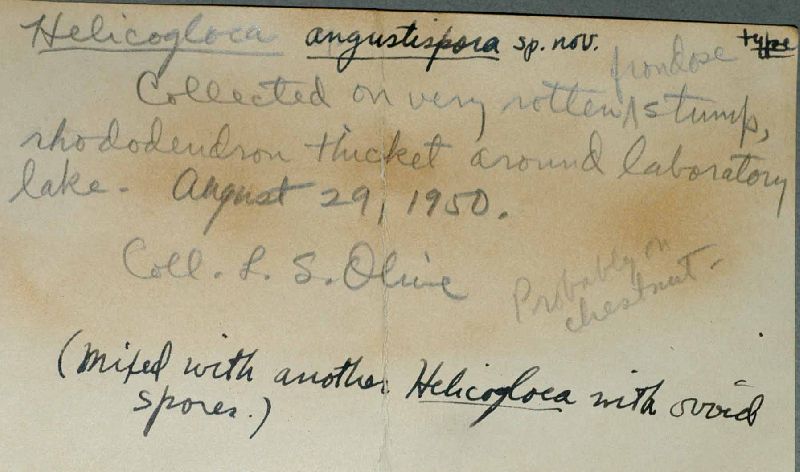 Helicogloea angustispora sp. nov. type
frondose
Collected on very rotten ^ stump,
rhododendron thicket around laboratory
lake. August 29, 1950.
Coll. L. S. Olive
Probably on
chestnut.
(Mixed with another Helicogloea with ovoid
spores.)